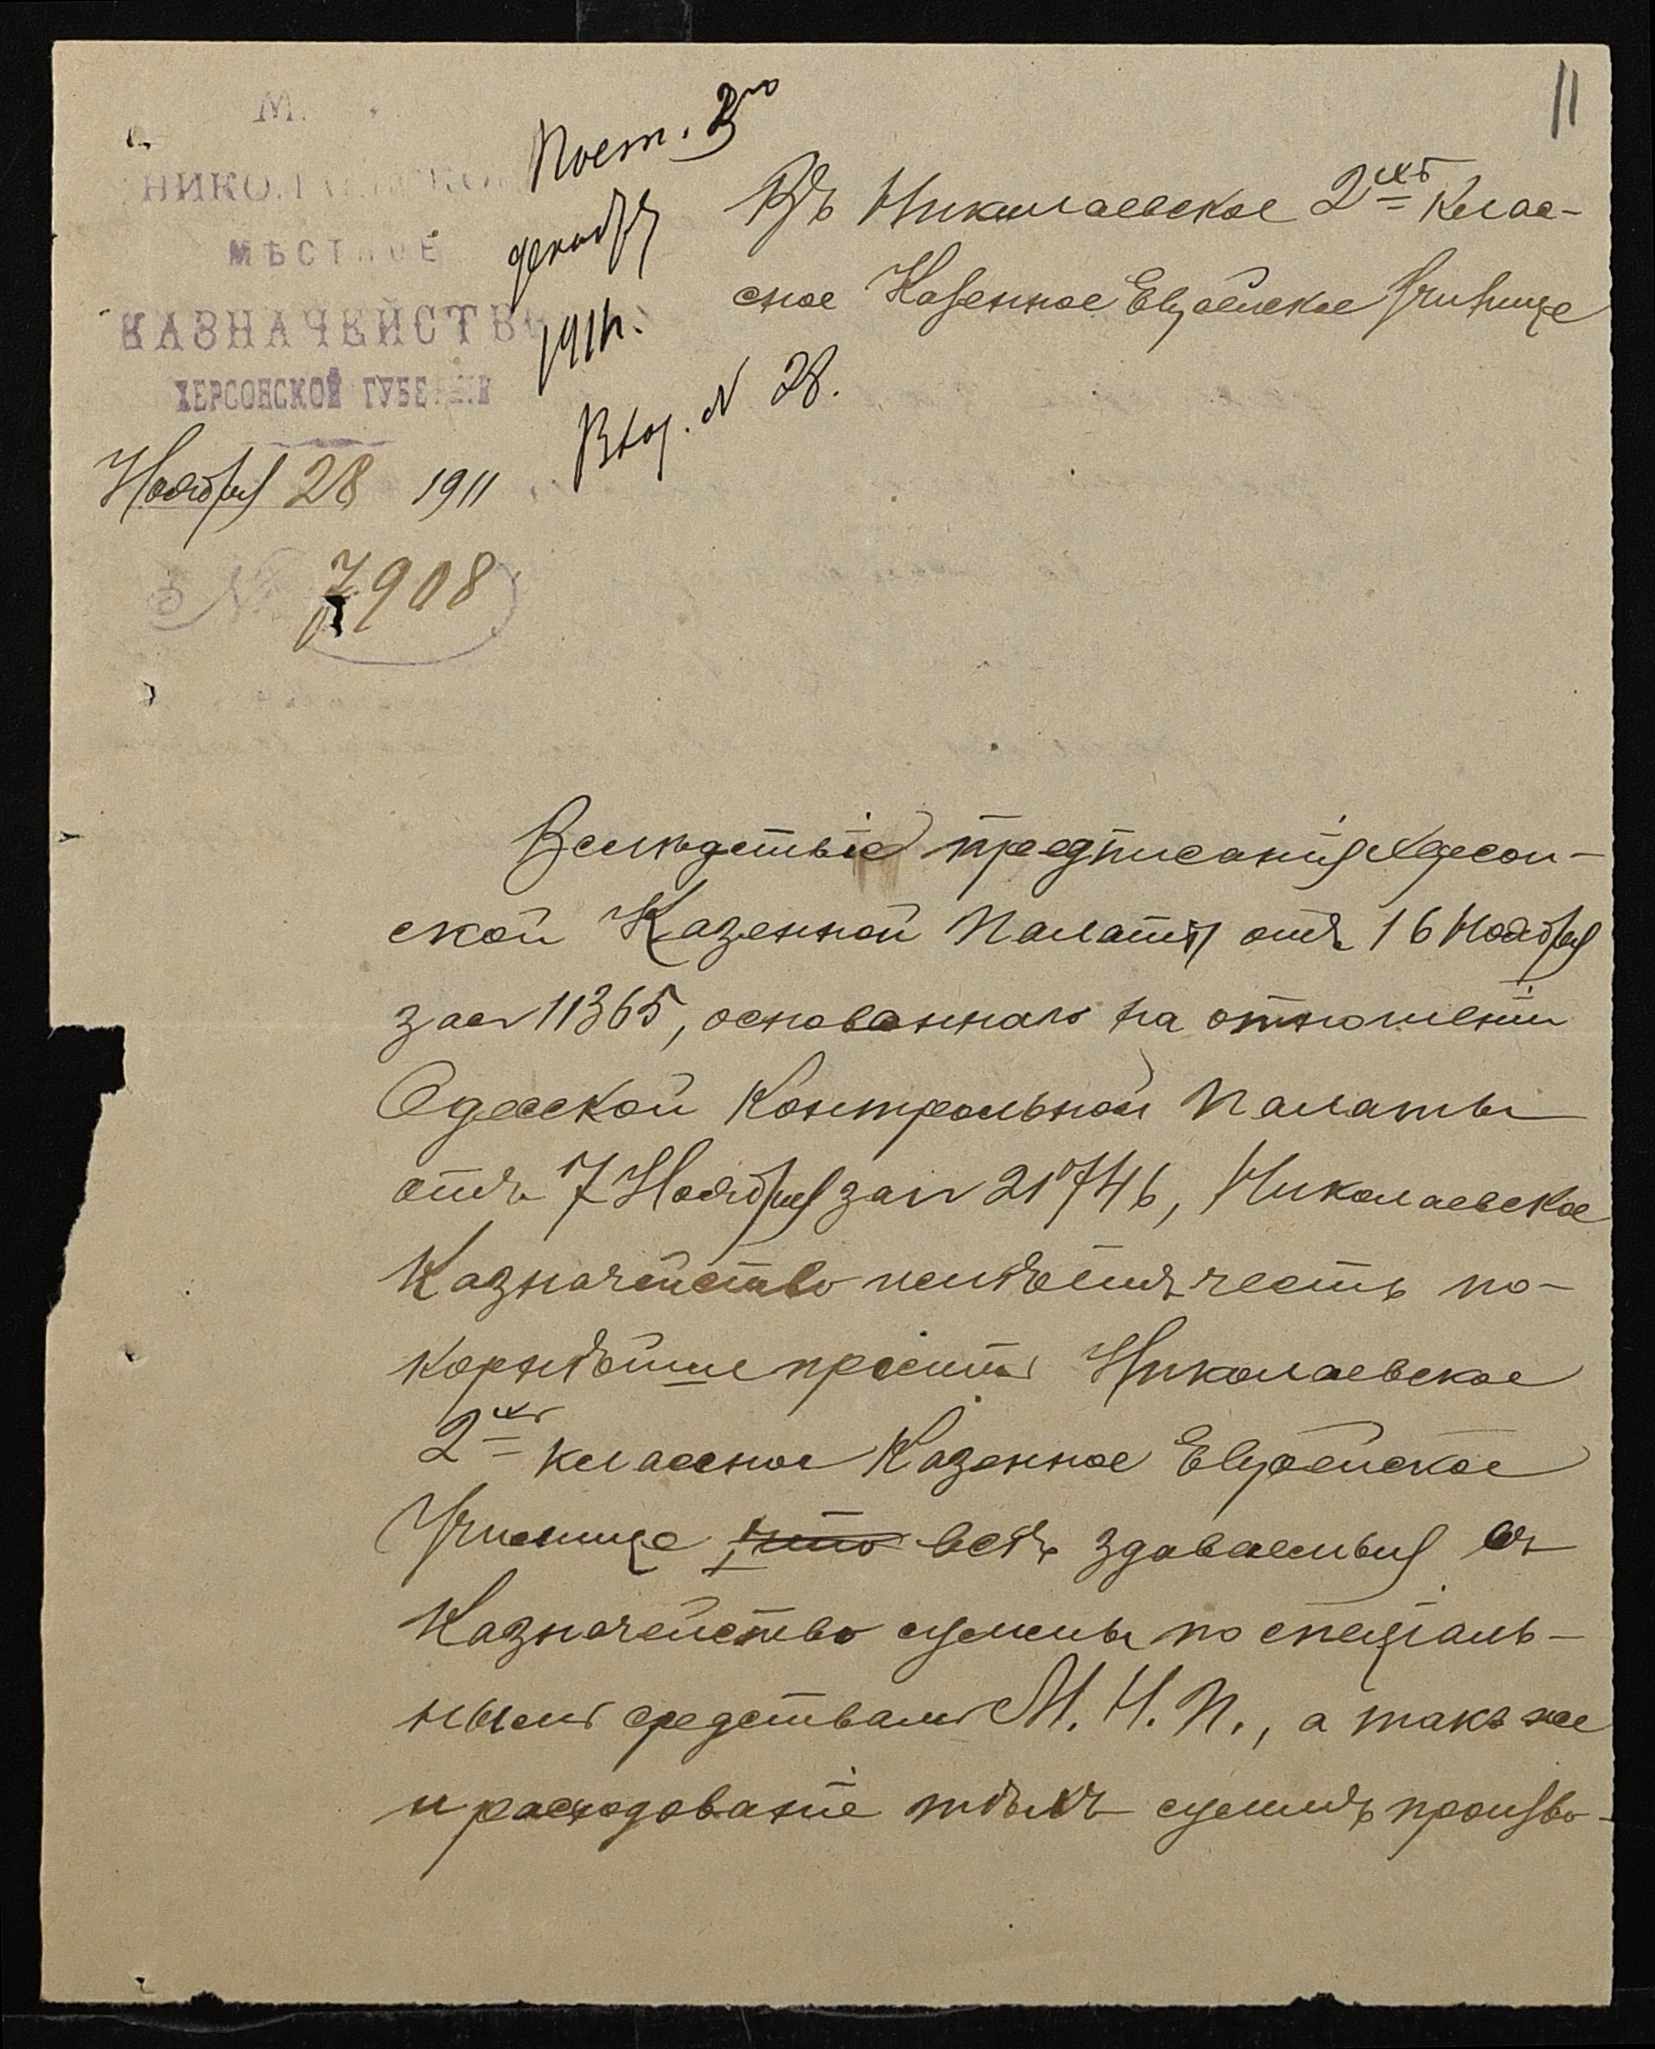 11
М.
НИКОЛАЕВСКОЕ
МѢСТНОЕ
КАЗНАЧЕЙСТВО
ХЕРСОНСКОЙ ГУБЕРНІИ
Ноября 28 1911
№ 7908
Пост. 3го
декабря
1911г.
Вход. N 28.
Въ Николаевское 2хъ клас-
сное Казенное Еврейское Училище
Вслѣдствіе предписанія Херсон-
ской Казенной Палаты отъ 16 Ноября
за N 11365, основаннаго на отношеніи
Одесской Контрольной Палаты
отъ 7 Ноября за N 21746, Николаевское
Казначейство имѣетъ честь по-
корнѣйше просить Николаевское
2хъ классное Казенное Еврейское
Училище что всѣ здаваемыя въ
Казначейство суммы по спеціаль-
нымъ средствамъ М. Н. П., а также
и расходованіе тѣхъ суммъ произво-